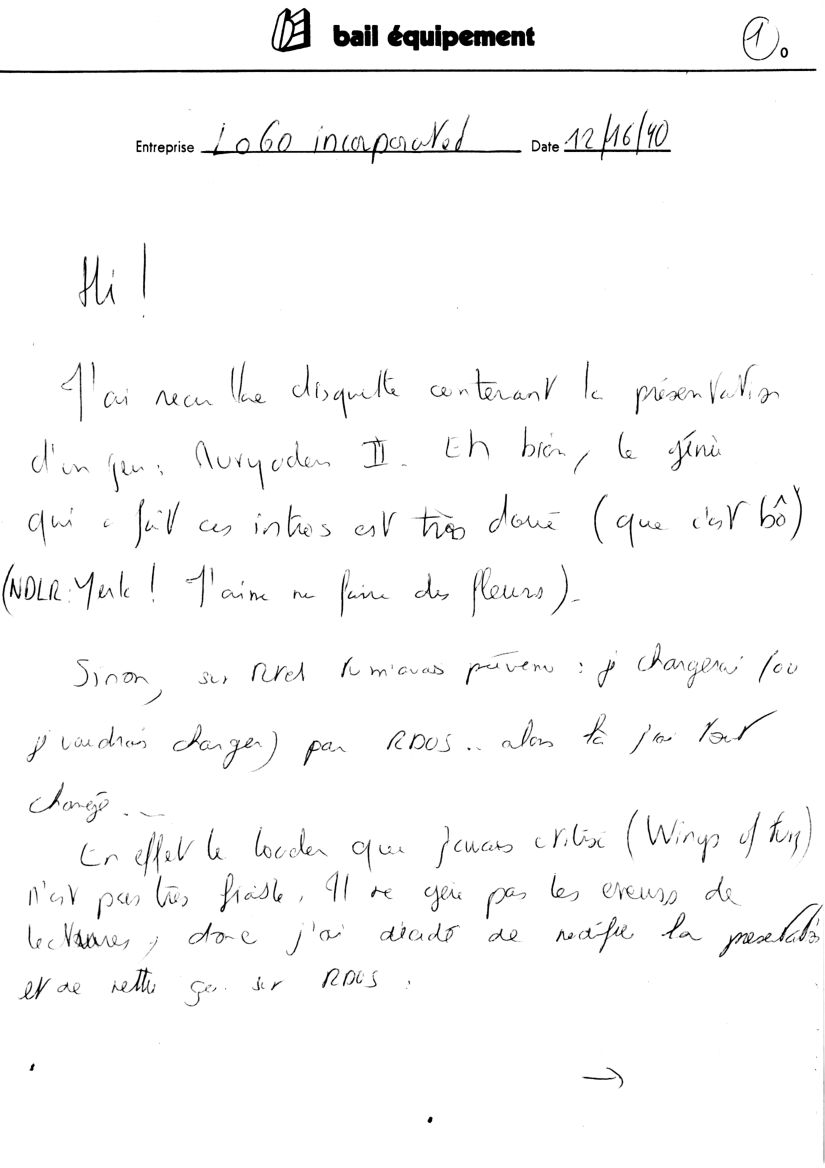 bail équipement
1.
Entreprise LoGo incorporated Date 12/16/90
Hi !
J'ai recu Une disquette contenant la présentation
d'un jeu : II. Eh bien, le génie
qui a fait ces intros est très doué (que c'est bô)
(NDLR: Yerk ! J'aime me faire des fleurs).
Sinon, sur tu m'avais prévenu : je changerai (ou
je voudrais changer) par RDOS .. alors là j'ai tout
changé...
En effet le loader que j'avais utilisé (Wings of fury)
n'est pas très fiable. Il ne gère pas les erreurs de
lectures, donc j'ai décidé de modifie la presentatio
et de mettre ça sur RDOS.
→